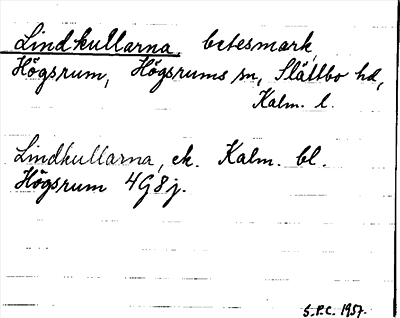 Lindkullarna, betesmark,
Högsrum, Högsrums sn, Slättbo hd,
Kalm. l.
Lindkullarna, ek. Kalm. bl.
Högsrum 4G8j.
S.P.C. 1957.